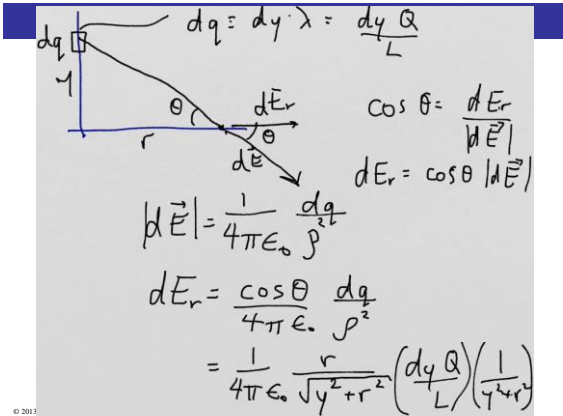 dq = dy · λ = dy Q / L
dq
y
θ
r
dE⃗r
θ
dE⃗
cos θ = dEr / |dE⃗|
dEr = cos θ |dE⃗|
|dE⃗| = 1 / 4πϵ₀ dq / ρ²
dEr = cos θ / 4πϵ₀ dq / ρ²
= 1 / 4πϵ₀ r / √y² + r² (dy Q / L) (1 / y² + r²)
© 2013